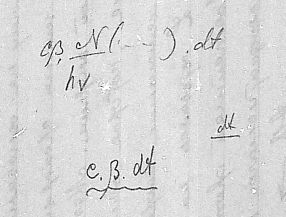 cβ. N/hν (---) . dt
dt
c. β. dt